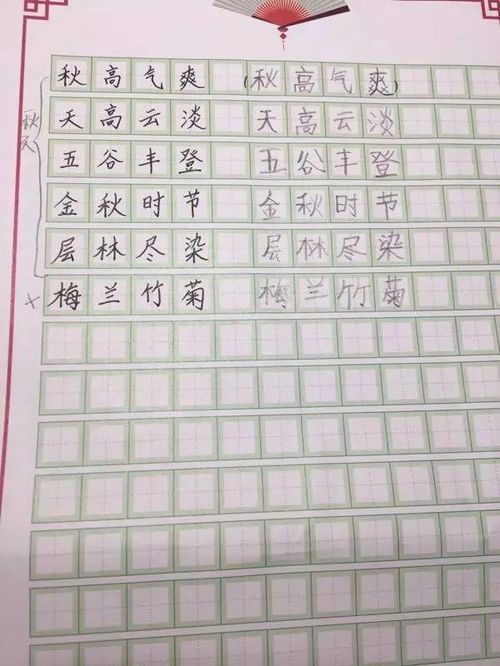 秋高气爽 (秋高气爽)
天高云淡 天高云淡
五谷丰登 五谷丰登
金秋时节 金秋时节
层林尽染 层林尽染
× 梅兰竹菊 梅兰竹菊
秋天